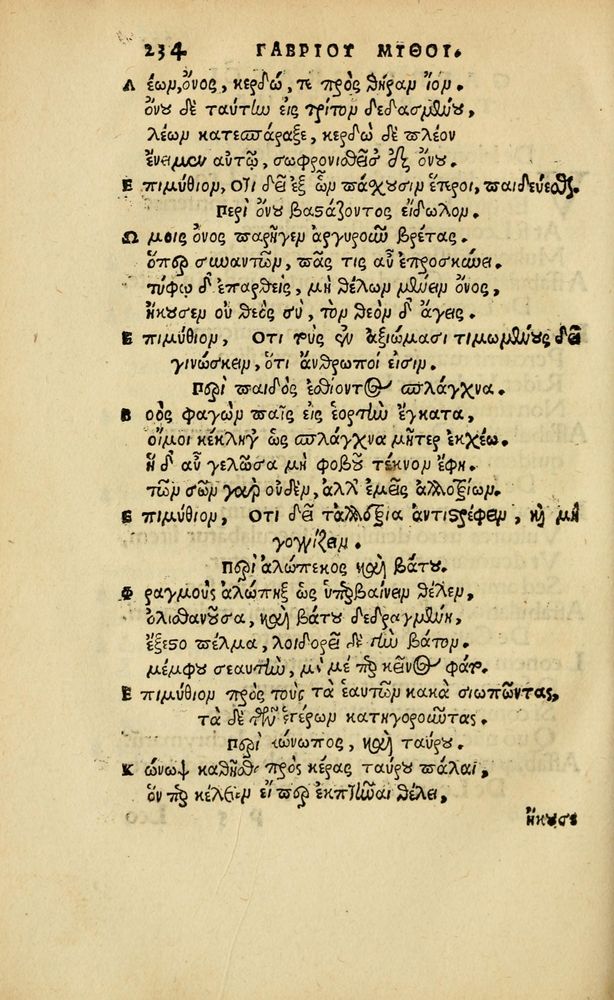 234 ΓΑΒΡΙΟΥ ΜΥΘΟΙ.
Λέων, ὄνος, κερδώ, τε πρὸς θήραν ἴον.
ὄνου δὲ ταύτην εἰς τρίτον δεδασμένου,
λέων κατεσπάραξε, κερδὼ δὲ πλέον
ἔνειμεν αὐτῷ, σωφρονισθεῖσ᾽ ἐξ ὄνου.
Ἐπιμύθιον, Ὅτι δεῖ ἐξ ὧν πάσχουσιν ἕτεροι, παιδεύεσθαι.
Περὶ ὄνου βαστάζοντος εἴδωλον.
Ὤμοις ὄνος παρῆγεν ἀργυροῦν βρέτας.
ὅπερ συναντῶν, πᾶς τις αὖ ἐπροσκύνει.
τύφῳ δ᾽ ἐπαρθεὶς, μὴ θέλων μένειν ὄνος,
ἤκουσεν οὐ θεὸς σὺ, τὸν θεὸν δ᾽ ἄγεις.
Ἐπιμύθιον, Ὅτι τοὺς ἐν ἀξιώμασι τιμωμένους δεῖ
γινώσκειν, ὅτι ἄνθρωποί εἰσιν.
Περὶ παιδὸς ἐσθίοντος σπλάγχνα.
Βοὸς φαγὼν παῖς εἰς ἑορτὴν ἔγκατα,
οἴμοι κέκληγ᾽ ὡς σπλάγχνα μῆτερ ἐκχέω.
ἡ δ᾽ αὖ γελῶσα μὴ φοβοῦ τέκνον ἔφη.
τῶν σῶν γὰρ οὐδὲν, ἀλλ᾽ ἐμεῖς ἀλλοτρίων.
Ἐπιμύθιον, Ὅτι δεῖ τἀλλότρια ἀντιστρέφειν, καὶ μὴ
γογγύζειν.
Περὶ ἀλώπεκος καὶ βάτου.
Φραγμοὺς ἀλώπηξ ὡς ὑπερβαίνειν θέλεν,
ὀλισθανοῦσα, καὶ βάτου δεδραγμένη,
ἔξεστο πέλμα, λοιδορεῖ δὲ τὴν βάτον.
μέμφου σεαυτὴν, μὴ μέ πρὸ κεῖνος φάτ.
Ἐπιμύθιον πρὸς τοὺς τὰ ἑαυτῶν κακὰ σιωπῶντας,
τὰ δὲ τῶν ἑτέρων κατηγοροῦντας.
Περὶ κώνωπος, καὶ ταύρου.
Κώνωψ καθῆσθε πρὸς κέρας ταύρου πάλαι,
ὃν πρὸ κέλευεν εἴπερ ἐκπτῆναι θέλει,
ἤκουσε